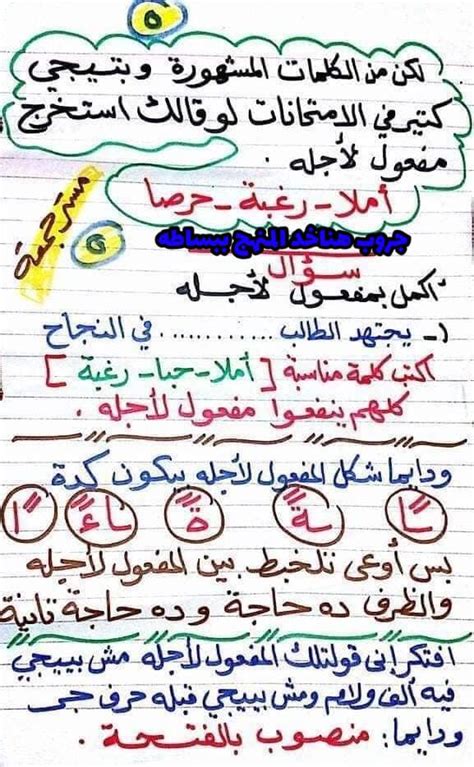 ٥
لكن من الكلمات المشهورة وبتيجي
كتير في الامتحانات لو قالك استخرج
مفعول لأجله .
أملا - رغبة - حرصا
مستر جمعة
جروب هناخد المنهج ببساطه
سؤال
أكمل بمفعول لأجله
١- يجتهد الطالب .......... في النجاح
اكتب كلمة مناسبة [ أملا - حبا - رغبة ]
كلهم ينفعوا مفعول لأجله .
ودايما شكل المفعول لأجله بيكون كدة
ـًا ـةً ةً اءً اً
بس أوعى تتلخبط بين المفعول لأجله
والظرف ده حاجة وده حاجة تانية
افتكر إنى قولتلك المفعول لأجله مش بييجي
فيه ألف ولام ومش بييجي قبله حرف جر
ودايما: منصوب بالفتحة .